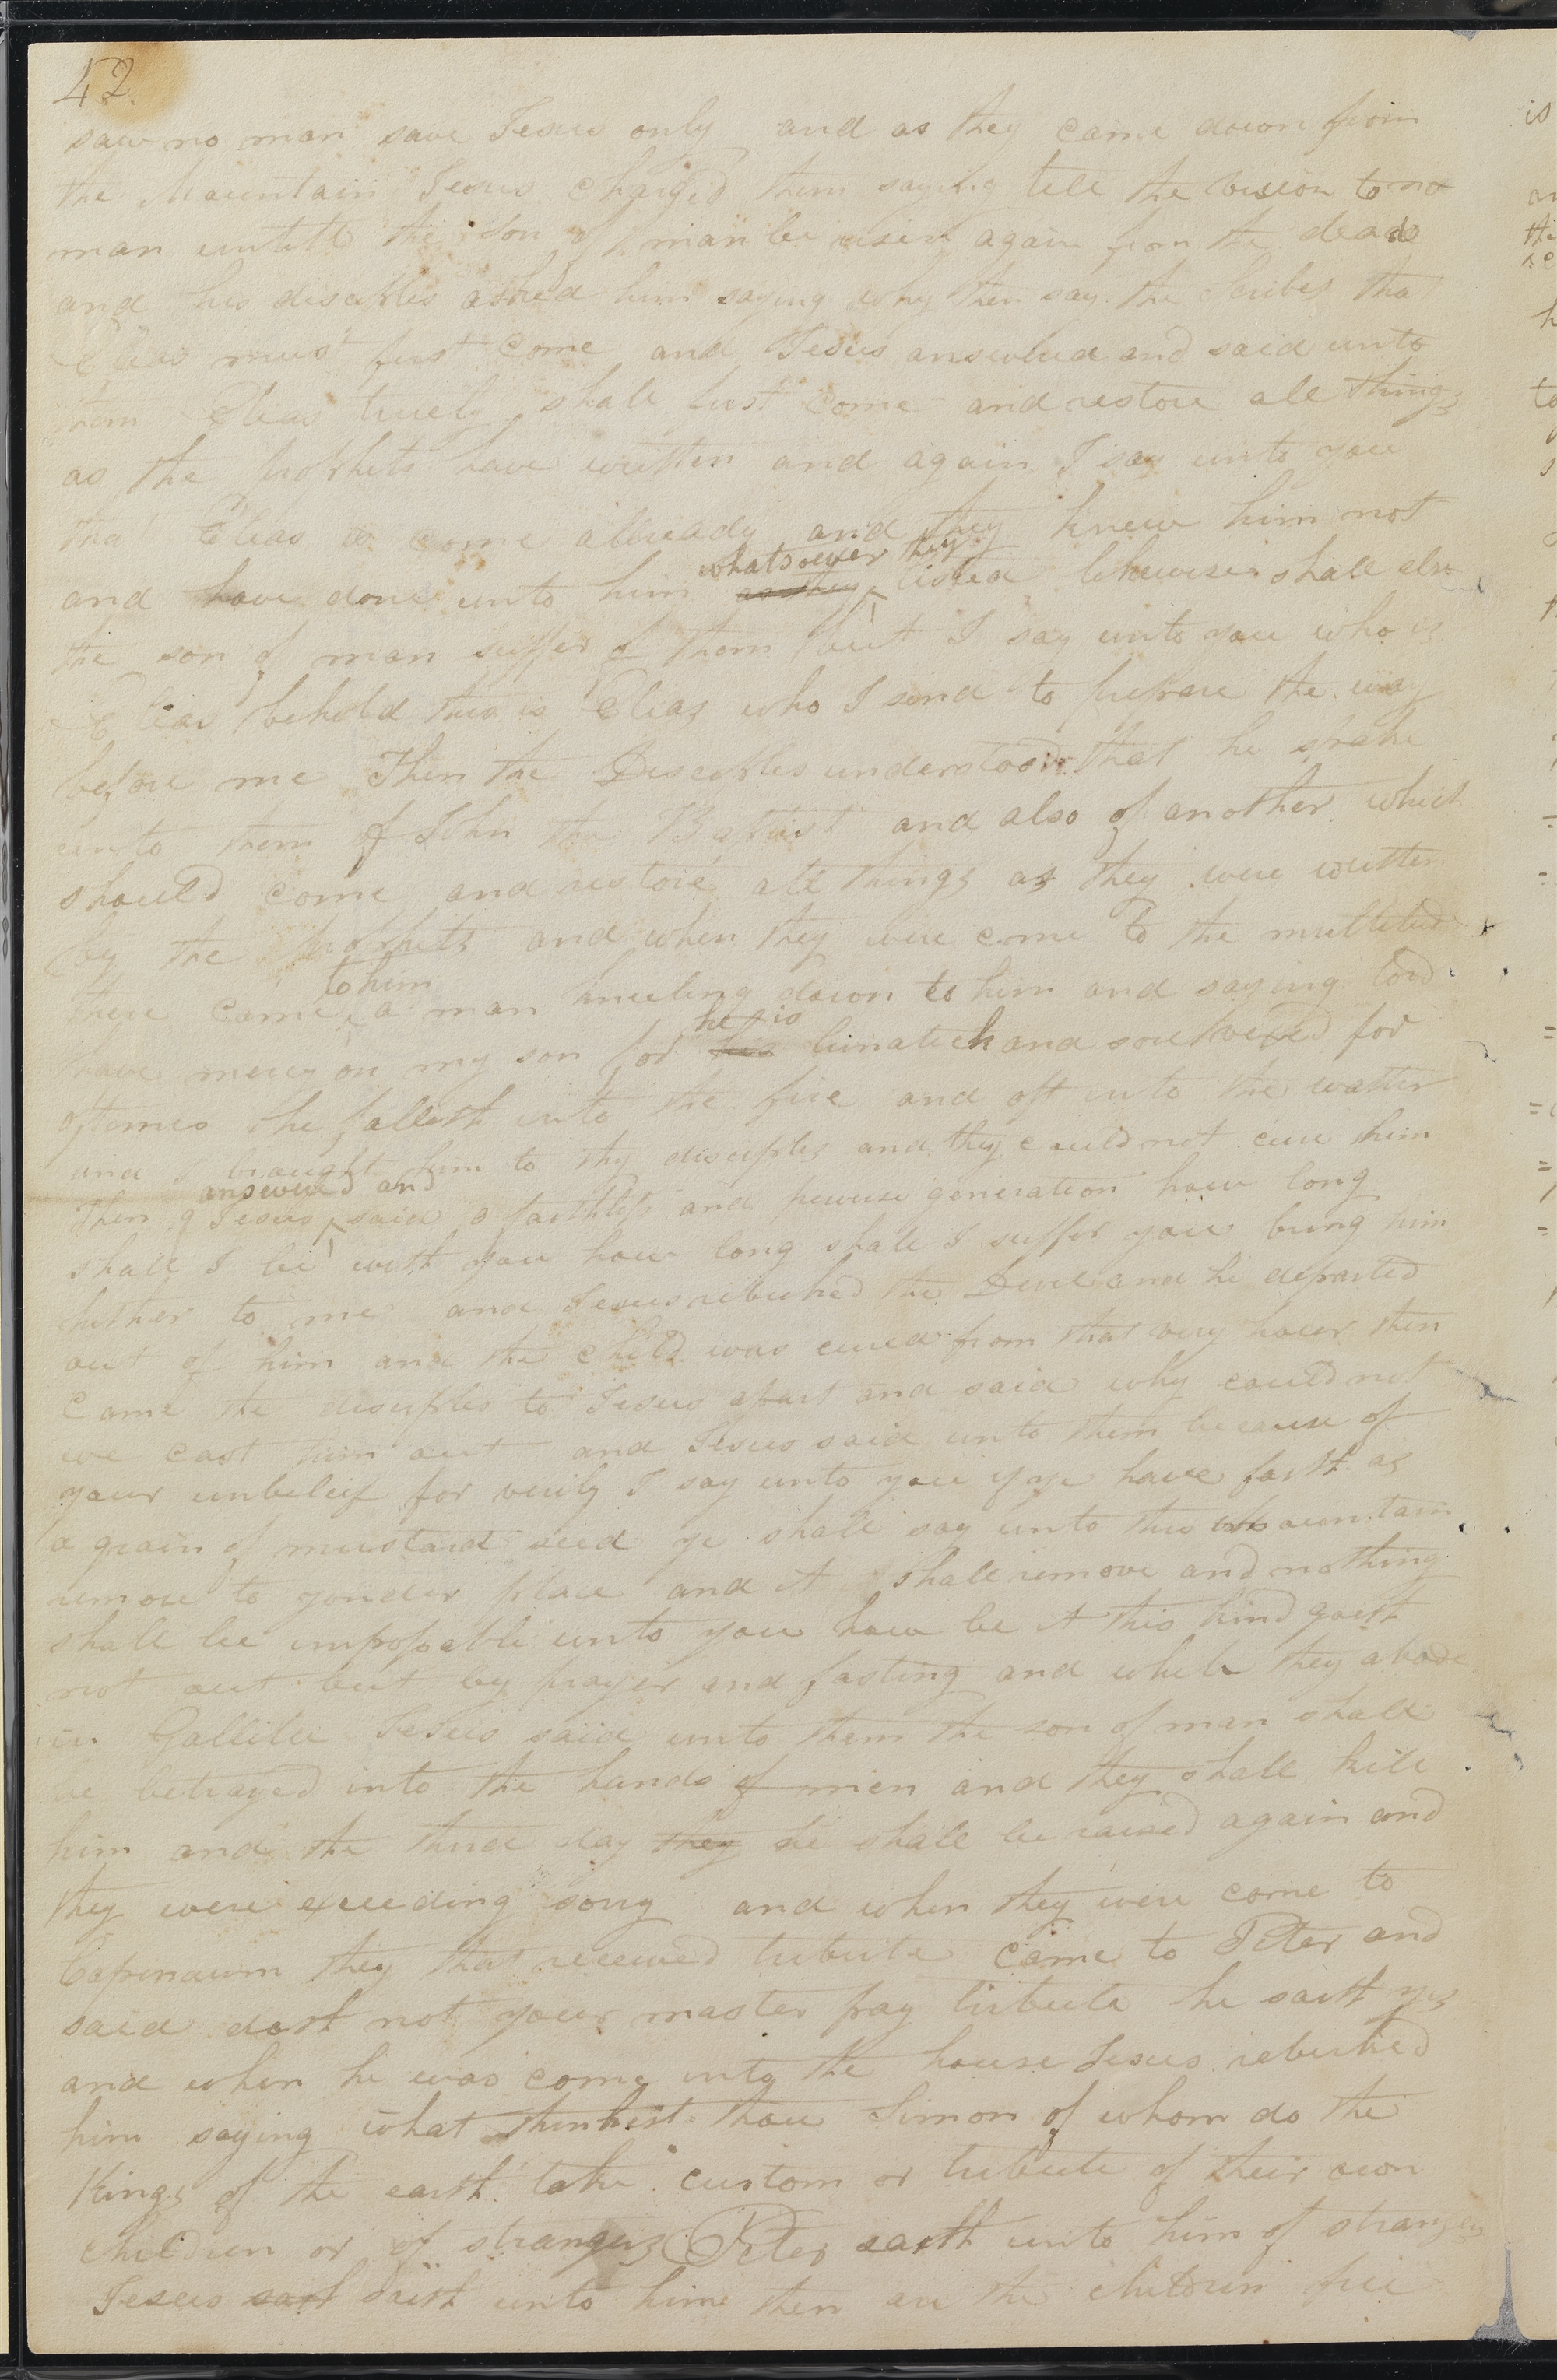 42.
saw no man save Jesus only and as they came down from
the Mountain Jesus charged them saying tell the vision to no
man untill the son of man be risen again from the dead
and his disciples asked him saying why then say the scribes tha
Elias must first come and Jesus answered and said unto
them Elias truely shall first come and restore all things
as the prophets have written and again I say unto you
that Elias is come allready and they knew him not
whatsoever they
and have done unto him as they listed likewise shall also
the son of man suffer of them but I say unto you who is
Elias behold this is Elias who I send to prepare the way
before me Then the Disciples understood that he spake
unto them of John the Baptist and also of another which
should come and restore all things as they were written
by the prophets and when they were come to the multitude
to him
there came a man kneeling down to him and saying lord
he is
have mercy on my son for his lunatick and sore vexed for
oftimes he falleth into the fire and oft into the watter
and I brought him to thy disciples and they could not cure him
answered and
Then Jesus said o faithless and perverse generation how long
shall I be with you how long shall I suffer you bring him
hither to me and Jesus rebuked the Devil and he departed
out of him and the child was cured from that very hour then
came the disciples to Jesus apart and said why could not
we cast him out and Jesus said unto them because of
your unbeleif for verily I say unto you if ye have faith as
a grain of mustard seed ye shall say unto this mountain
remove to yonder place and it shall remove and nothing
shall be impossable unto you how be it this kind goeth
not out but by prayer and fasting and while they abode
in Gallilee Jesus said unto them the son of man shall
be betrayed into the hands of men and they shall kill
him and the third day they he shall be raised again and
they were exceeding sorry and when they were come to
Capernaum they that received tribute came to Peter and
said doth not your master pay tribute he saith yes
and when he was come into the house Jesus rebuked
him saying what thinkest thou Simon of whom do the
Kings of the earth take custom or tribute of their own
children or of strangers Peter saith unto him of strangers
Jesus sath saith unto him then are the children free